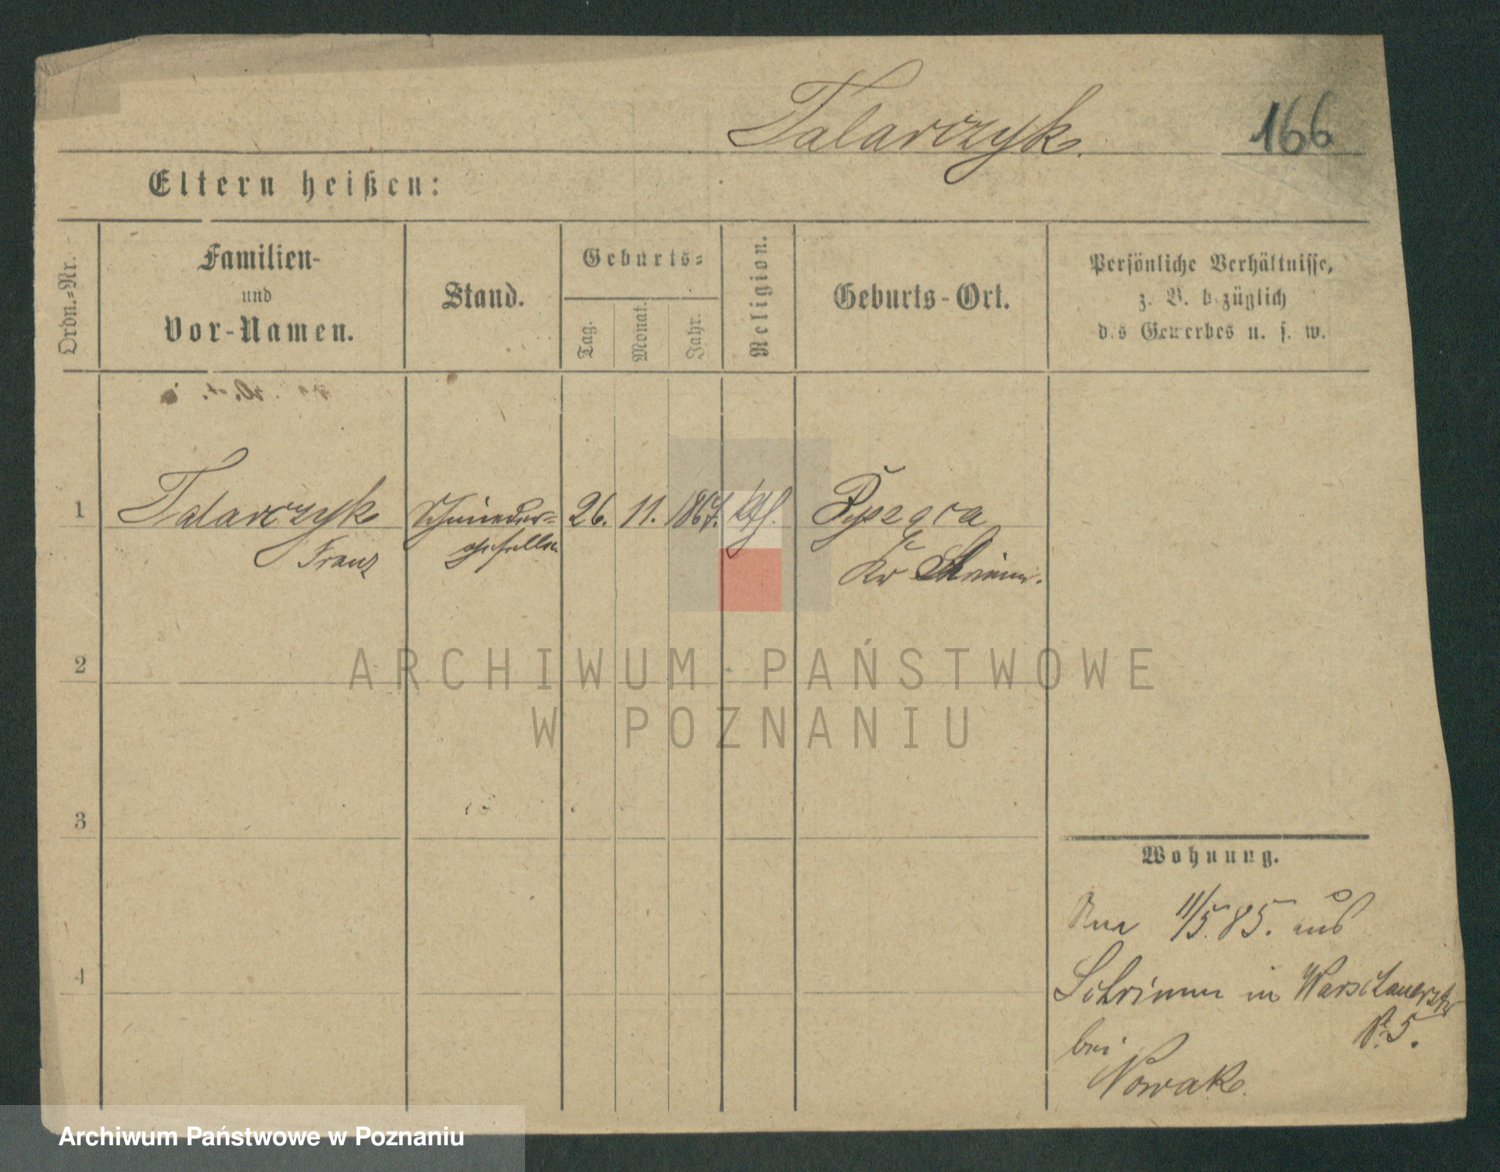 Talarczyk.
166
Eltern heißen:
Ordn.-Nr.
Familien-
und
Vor-Namen.
Stand.
Geburts-
Tag.
Monat.
Jahr.
Religion.
Geburts-Ort.
Persönliche Verhältnisse,
z. B. bezüglich
des Gewerbes u. s. w.
1
Talarczyk
Franz
geselle
26.
11.
1867.
kath.
Kr Schrimm.
2
3
4
ARCHIWUM PAŃSTWOWE
W POZNANIU
Wohnung.
11/5. 85. aus
Schrimm in Warschauerstr
No 5.
bei
Nowak.
Archiwum Państwowe w Poznaniu